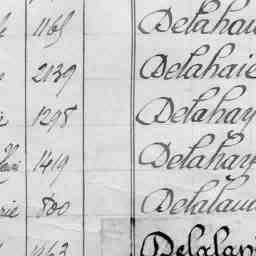 1165 Delahau
2139 Delahaie
1298 Delahay
1419 Delahay
rie 800 Delalau
1963 Delalan